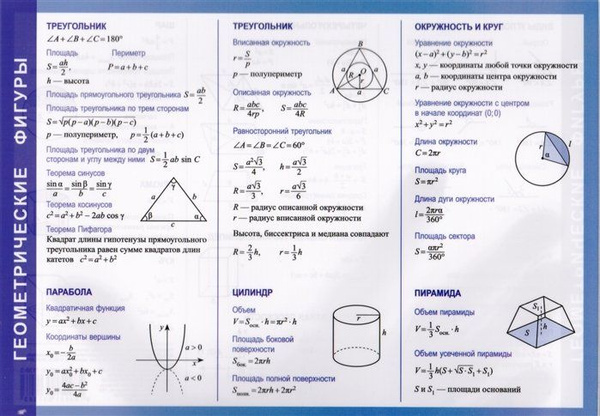 ГЕОМЕТРИЧЕСКИЕ ФИГУРЫ
ТРЕУГОЛЬНИК
∠A+∠B+∠C=180°
Площадь Периметр
S=ah/2, P=a+b+c
h — высота
Площадь прямоугольного треугольника S=ab/2
Площадь треугольника по трем сторонам
S=√p(p−a)(p−b)(p−c)
p — полупериметр, p=1/2(a+b+c)
Площадь треугольника по двум
сторонам и углу между ними S=1/2 ab sin C
Теорема синусов
sinα/a=sinβ/b=sinγ/c
Теорема косинусов
c²=a²+b²−2ab cos γ
Теорема Пифагора
Квадрат длины гипотенузы прямоугольного
треугольника равен сумме квадратов длин
катетов c²=a²+b²
a
b
c
α
β
γ
ТРЕУГОЛЬНИК
Вписанная окружность
r=S/p
p — полупериметр
Описанная окружность
R=abc/4rp, S=abc/4R
Равносторонний треугольник
∠A=∠B=∠C=60°
S=a²√3/4, h=a√3/2
R=a√3/3, r=a√3/6
R — радиус описанной окружности
r — радиус вписанной окружности
Высота, биссектриса и медиана совпадают
R=2/3h, r=1/3h
B
a
a
R
O
r
A
a
C
ОКРУЖНОСТЬ И КРУГ
Уравнение окружности
(x−a)²+(y−b)²=r²
x, y — координаты любой точки окружности
a, b — координаты центра окружности
r — радиус окружности
Уравнение окружности с центром
в начале координат (0;0)
x²+y²=r²
Длина окружности
C=2πr
Площадь круга
S=πr²
Длина дуги окружности
l=2πrα/360°
Площадь сектора
S=απr²/360°
r
α
l
ПАРАБОЛА
Квадратичная функция
y=ax²+bx+c
Координаты вершины
x₀=−b/2a
y₀=ax₀²+bx₀+c
y₀=4ac−b²/4a
y
a>0
x
a<0
ЦИЛИНДР
Объем
V=Sосн.·h=πr²·h
Площадь боковой
поверхности
Sбок.=2πrh
Площадь полной поверхности
Sполн.=2πrh+2πr²
r
h
ПИРАМИДА
Объем пирамиды
V=1/3Sосн.·h
Объем усеченной пирамиды
V=1/3h(S+√S·S₁+S₁)
S и S₁ — площади оснований
S₁
h
S